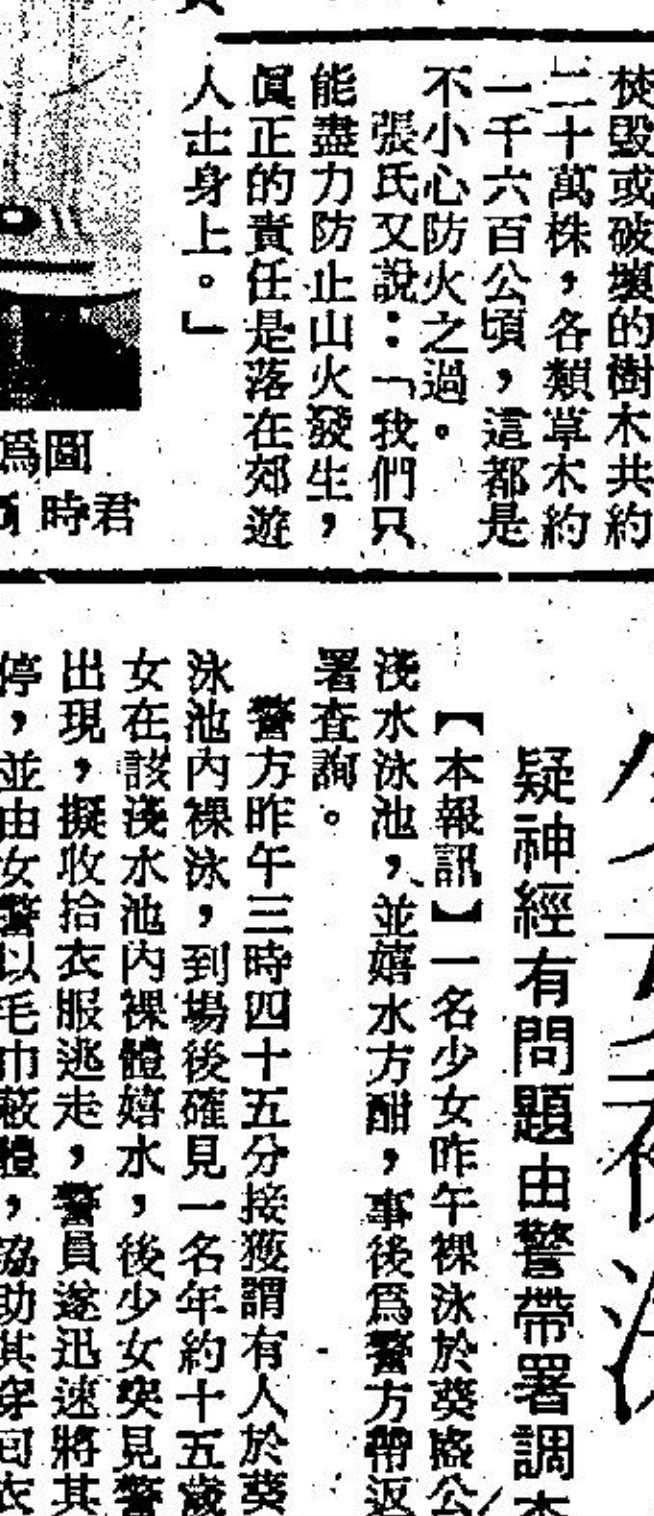 焚毀或破壞的樹木共約
二十萬株，各類草木約
一千六百公頃，這都是
不小心防火之過。
張氏又說：「我們只
能盡力防止山火發生，
眞正的責任是落在郊遊
人士身上。」
圖爲
君時
少女裸泳
疑神經有問題由警帶署調查
【本報訊】一名少女昨午裸泳於葵盛公
淺水泳池，並嬉水方酣，事後爲警方帶返
署查詢。
警方昨午三時四十五分接獲謂有人於葵
泳池內裸泳，到場後確見一名年約十五歲
女在該淺水池內裸體嬉水，後少女突見警
出現，擬收拾衣服逃走，警員遂迅速將其
停，並由女警以毛巾蔽體，協助其穿回衣